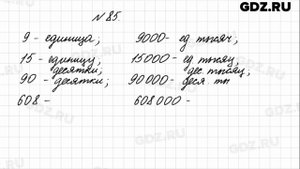 GDZ.RU
№ 85.
9 - единица; 9000 - ед тысяч;
15 - единицы, 15000 - ед тысяч,
десятки; дес тысяч;
90 - десятки; 90000 - деся тн
608 - 608000 -